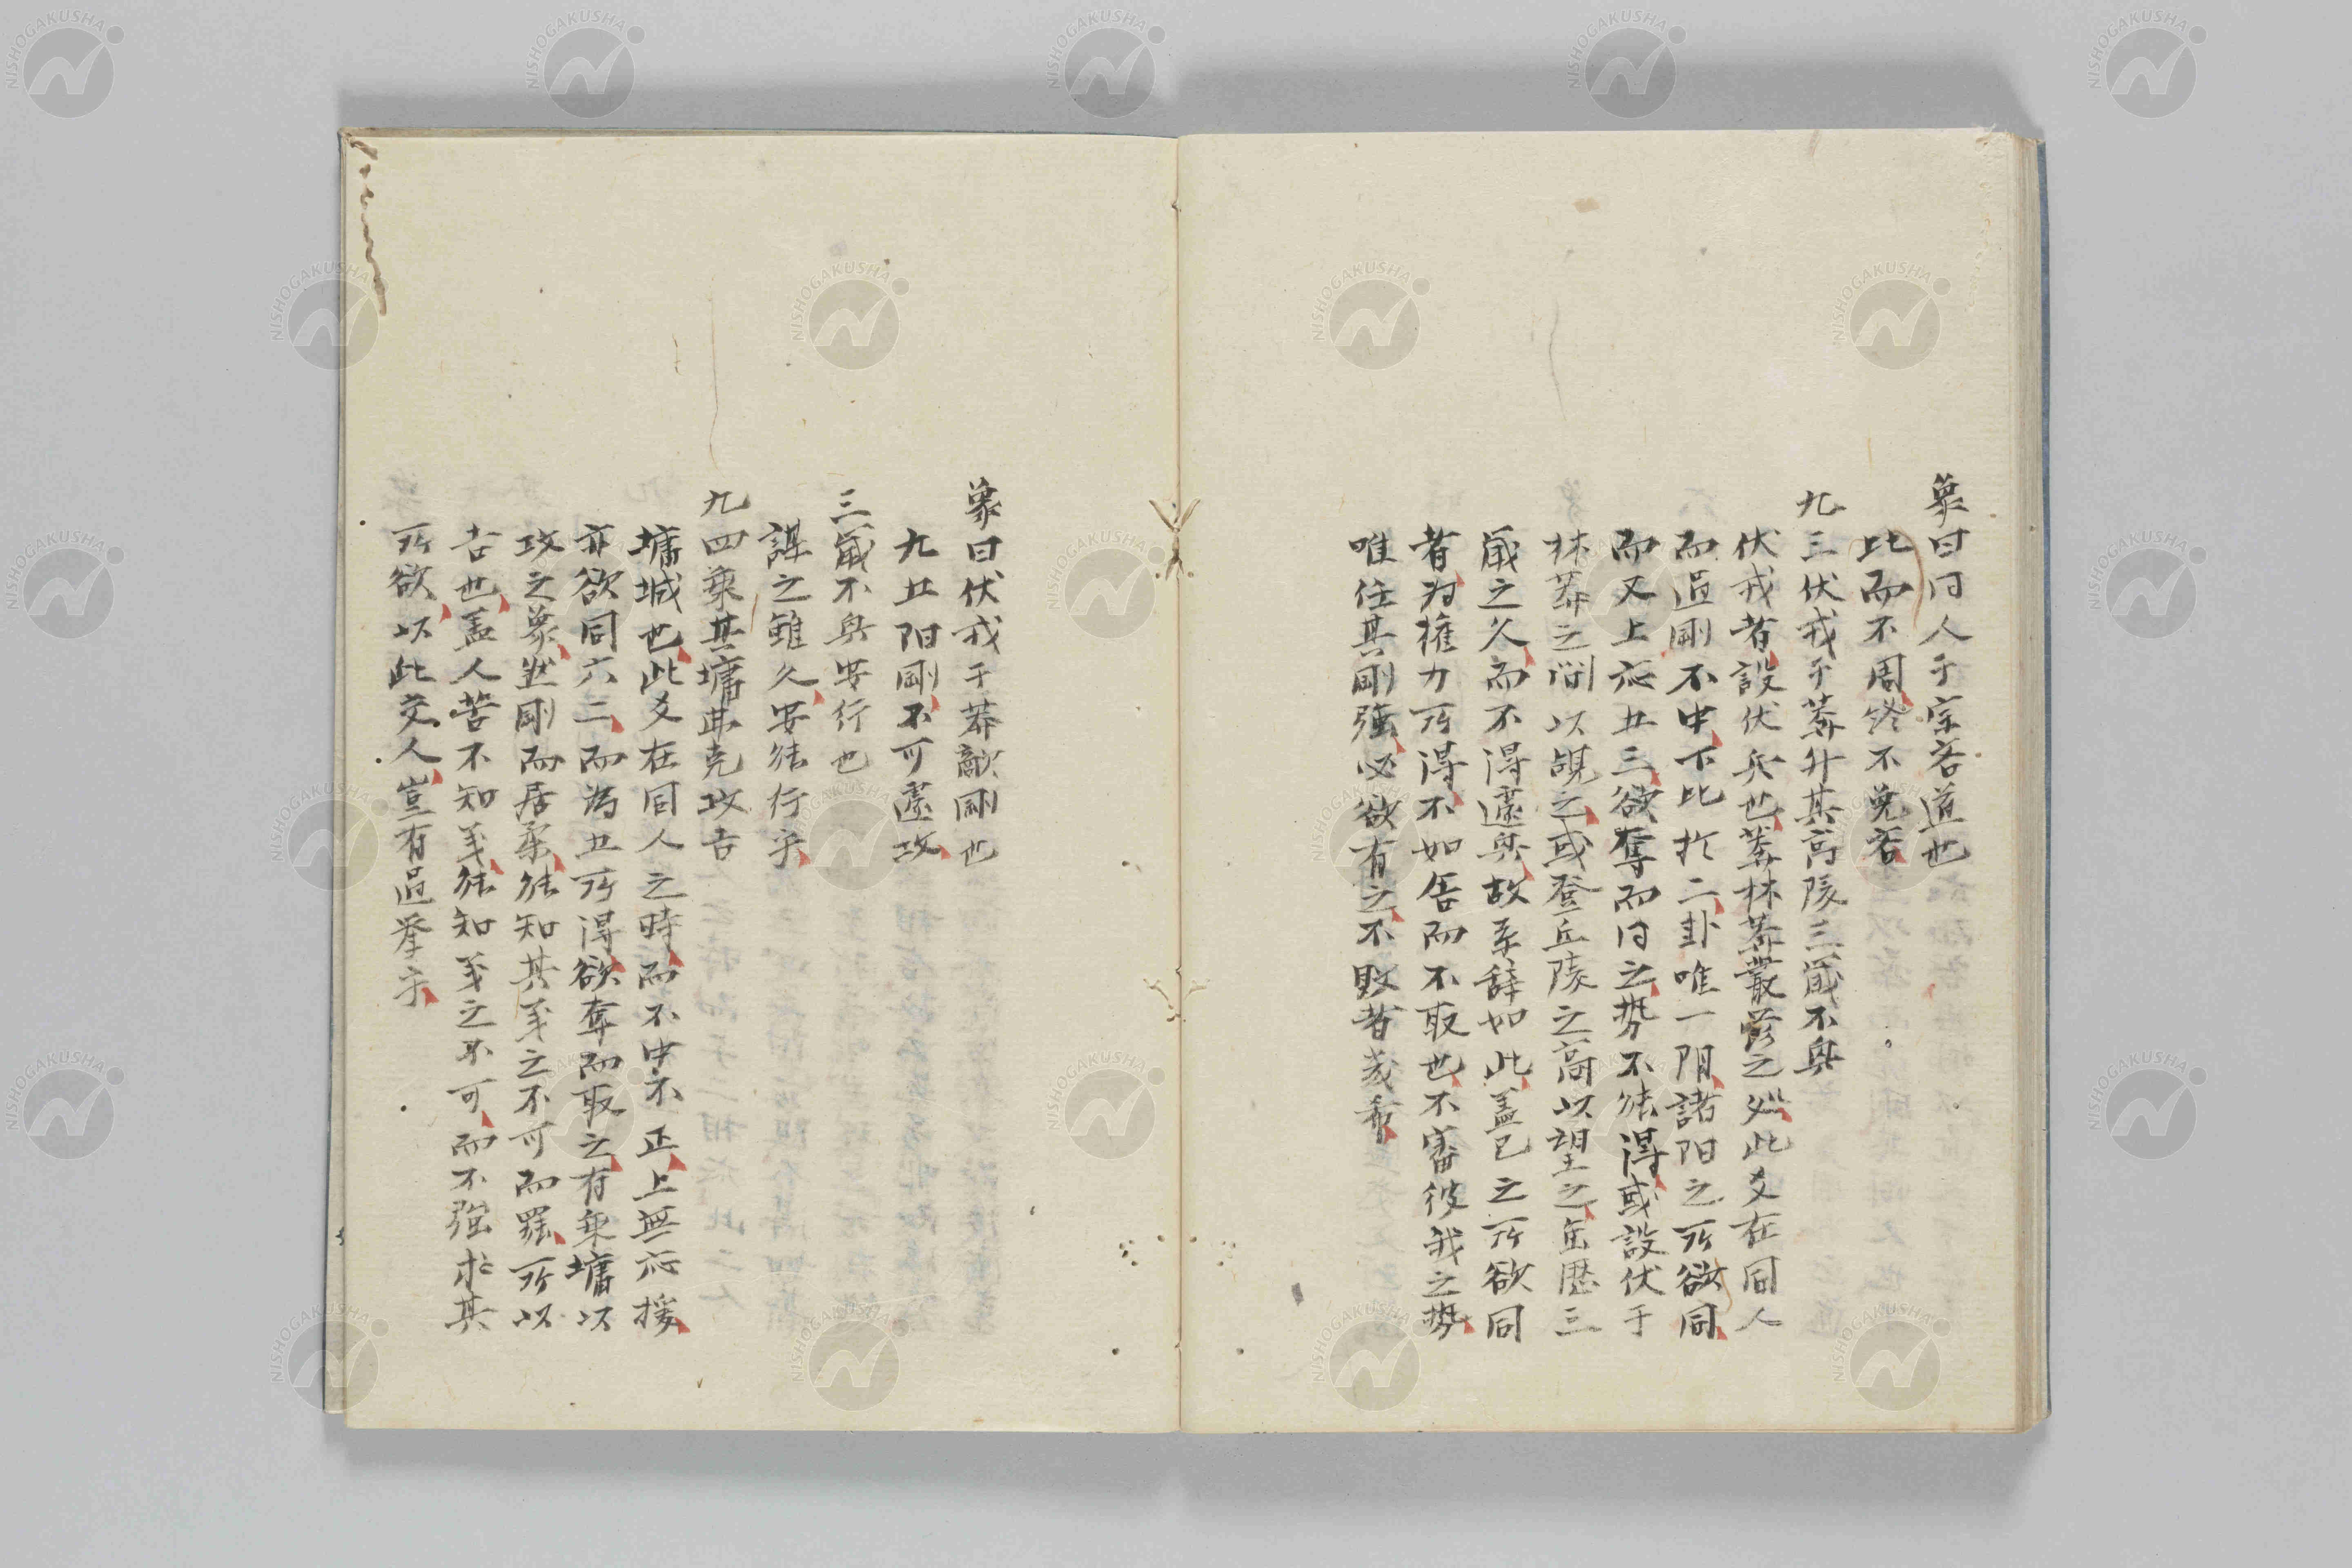 象曰同人于宗吝道也
比而不周終不免吝
九三伏戎于莽升其高陵三歳不興
伏戎者設伏兵也莽林莽叢薉之処此爻在同人
而過剛不中下比於二卦唯一陰諸陽之所欲同
而又上応五三欲奪而同之勢不能得或設伏于
林莽之間以覘之或登丘陵之高以望之至歴三
歳之久而不得遽興故系辞如此蓋己之所欲同
者为権力所得不如舎而不取也不審彼我之勢
唯任其剛強必欲有之不敗者幾希
象曰伏戎于莽敵剛也
九五陽剛不可遽攻
三歳不興安行也
謀之雖久安能行乎
九四乗其墉弗克攻吉
墉城也此爻在同人之時而不中不正上無応援
亦欲同六二而為五所得欲奪而取之有乗墉以
攻之象然剛而居柔能知其義之不可而罷所以
吉也蓋人苦不知義能知義之不可而不強求其
所欲以此交人豈有過挙乎
NISHOGAKUSHA